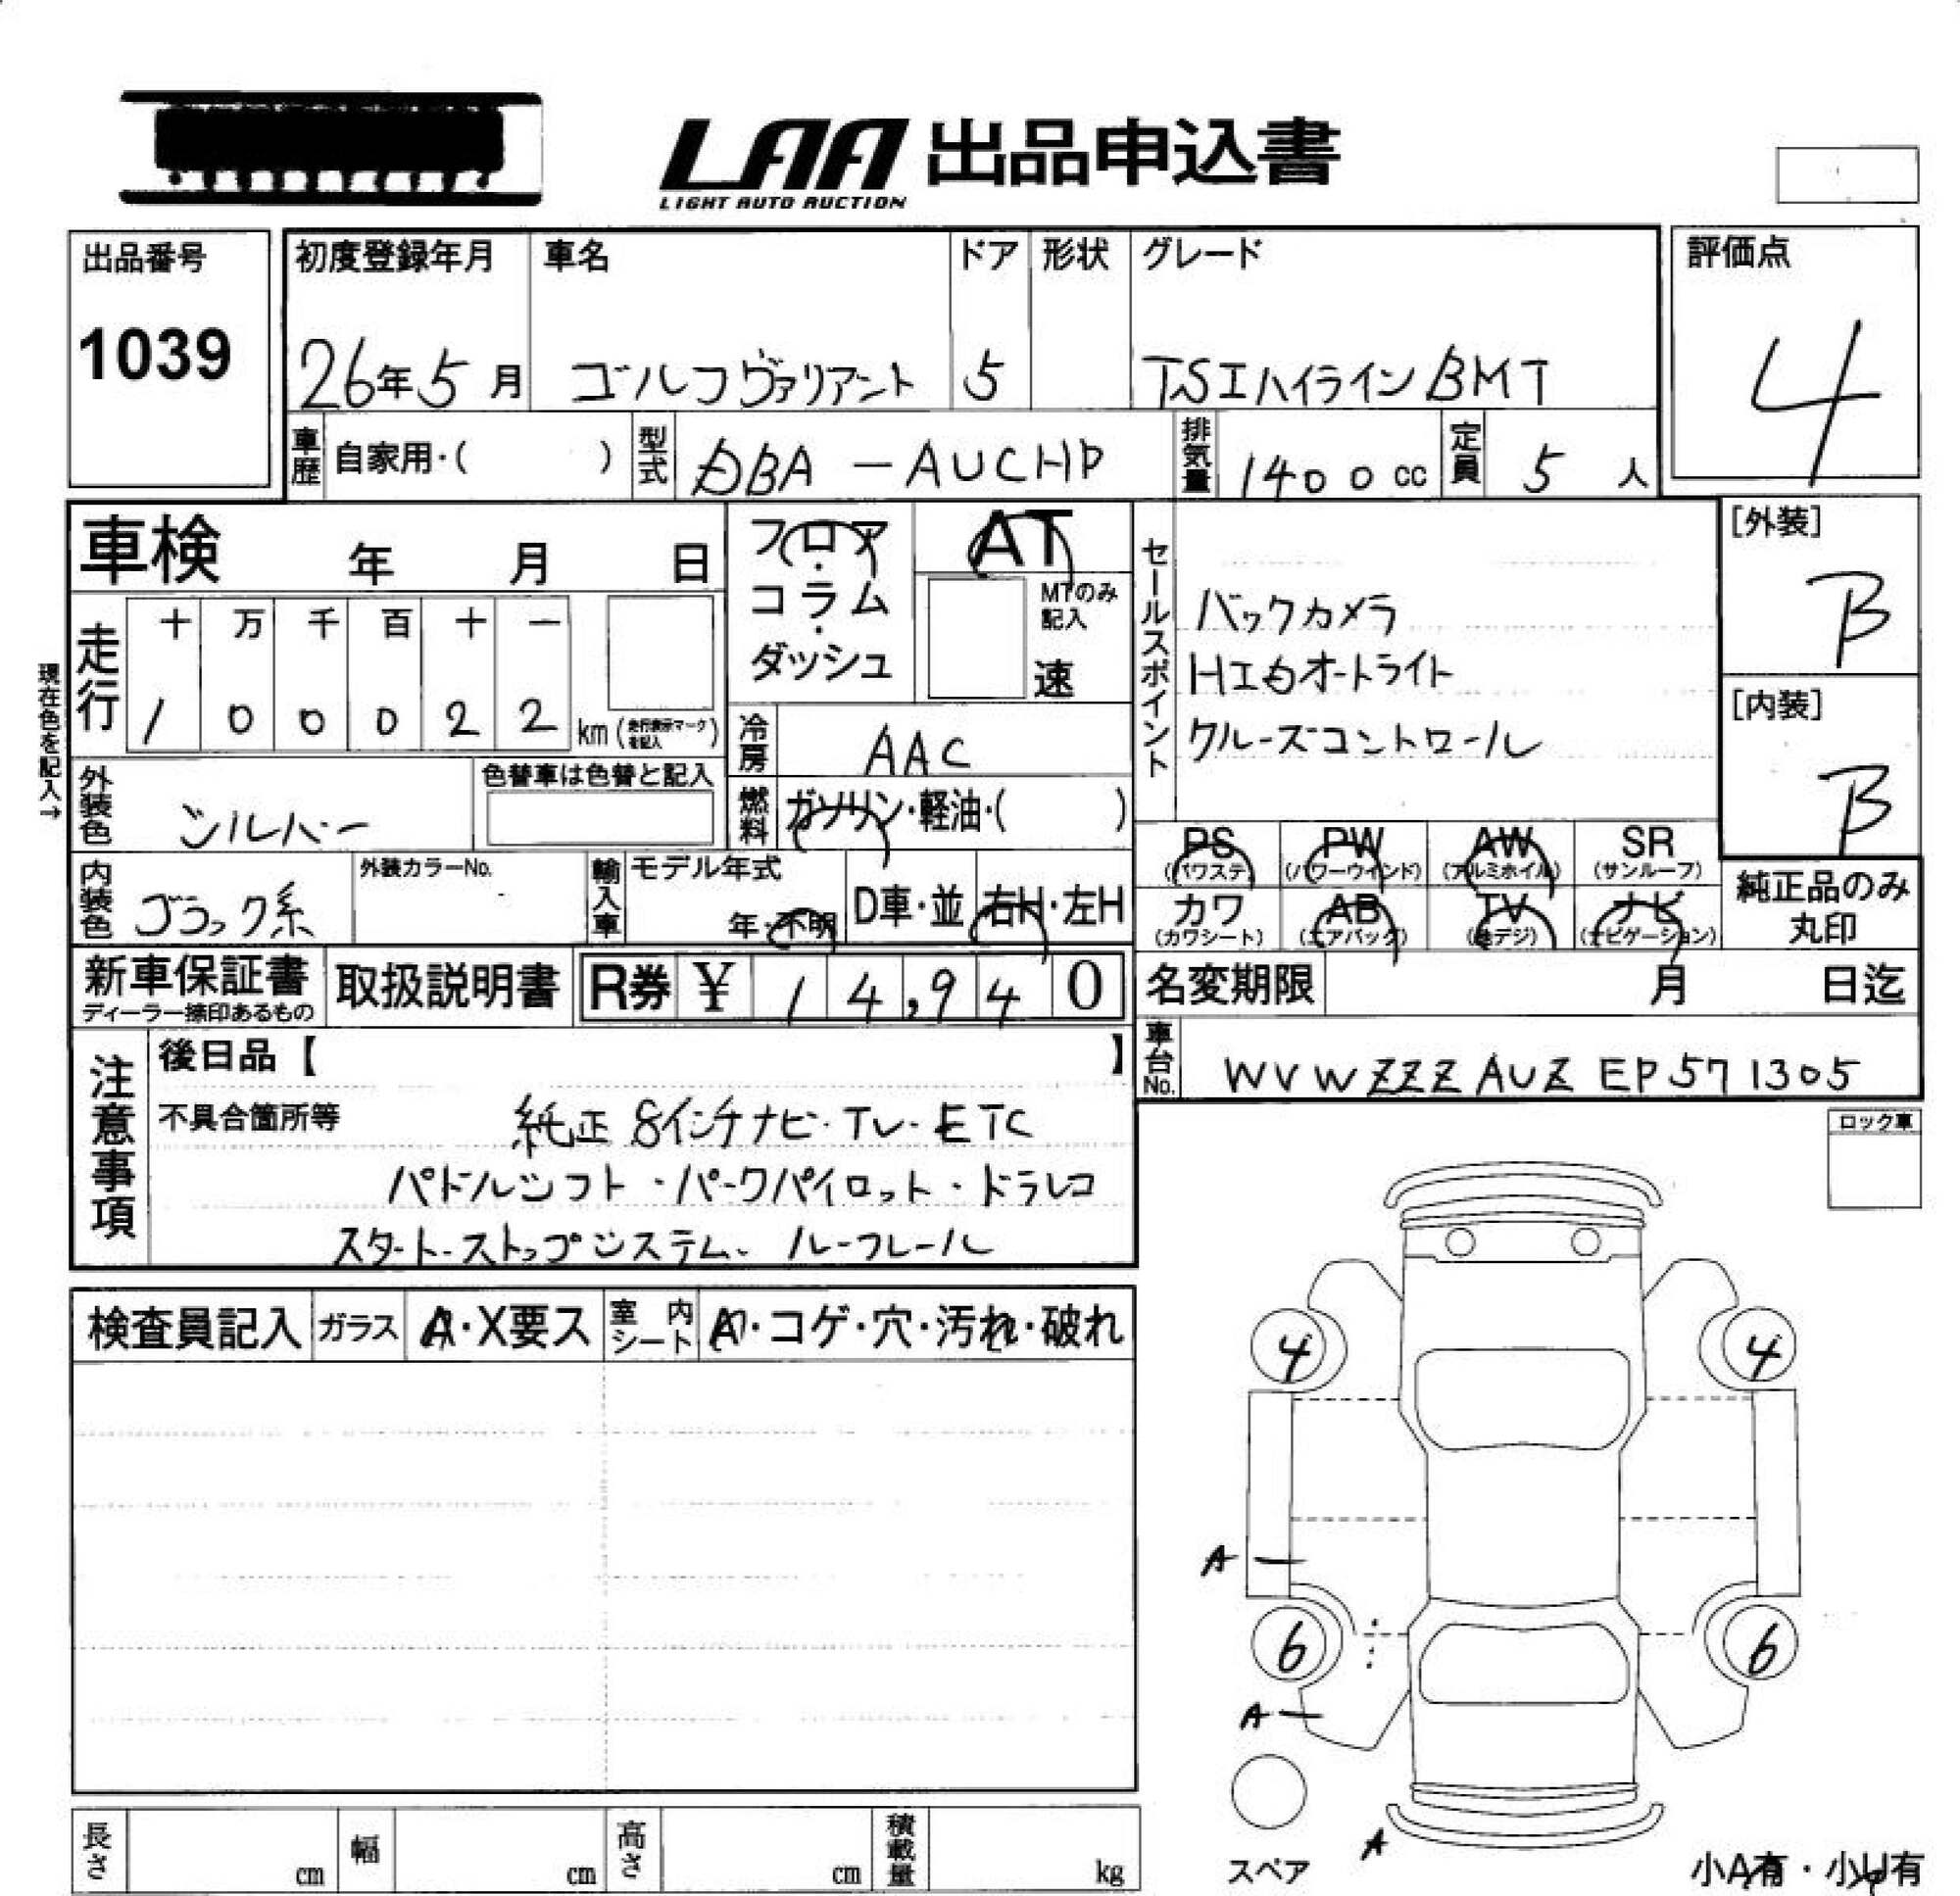 LAA 出品申込書
LIGHT AUTO AUCTION
出品番号
1039
初度登録年月
26年5月
車名
ゴルフヴァリアント
ドア
5
形状
グレード
TSIハイラインBMT
評価点
4
車歴 自家用・( )
型式 DBA－AUCHP
排気量 1400 cc
定員 5 人
車検 年 月 日
フロア・コラム・ダッシュ
AT
MTのみ記入
速
セールスポイント
バックカメラ
HIDオートライト
クルーズコントロール
[外装]
B
[内装]
B
現在色を記入→
走行
十 万 千 百 十 一
1 0 0 0 2 2 km (走行表示マークを記入)
冷房 AAC
外装色 シルバー
色替車は色替と記入
燃料 ガソリン・軽油・( )
PS (パワステ)
PW (パワーウインド)
AW (アルミホイル)
SR (サンルーフ)
カワ (カワシート)
AB (エアバック)
TV (地デジ)
ナビ (ナビゲーション)
純正品のみ丸印
内装色 ブラック系
外装カラーNo.
輸入車
モデル年式
年・不明
D車・並
右H・左H
新車保証書
ディーラー捺印あるもの
取扱説明書
R券 ¥ 14,940
名変期限 月 日迄
車台No. WVWZZZAUZEP571305
注意事項
後日品【 】
不具合箇所等
純正8インチナビ・TV・ETC
パドルシフト・パークパイロット・ドラレコ
スタート・ストップシステム・ルーフレール
ロック車
検査員記入
ガラス A・X要ス
室内シート A・コゲ・穴・汚れ・破れ
4 4
A
6 6
A
A
スペア
小A有・小U有
長さ cm
幅 cm
高さ cm
積載量 kg